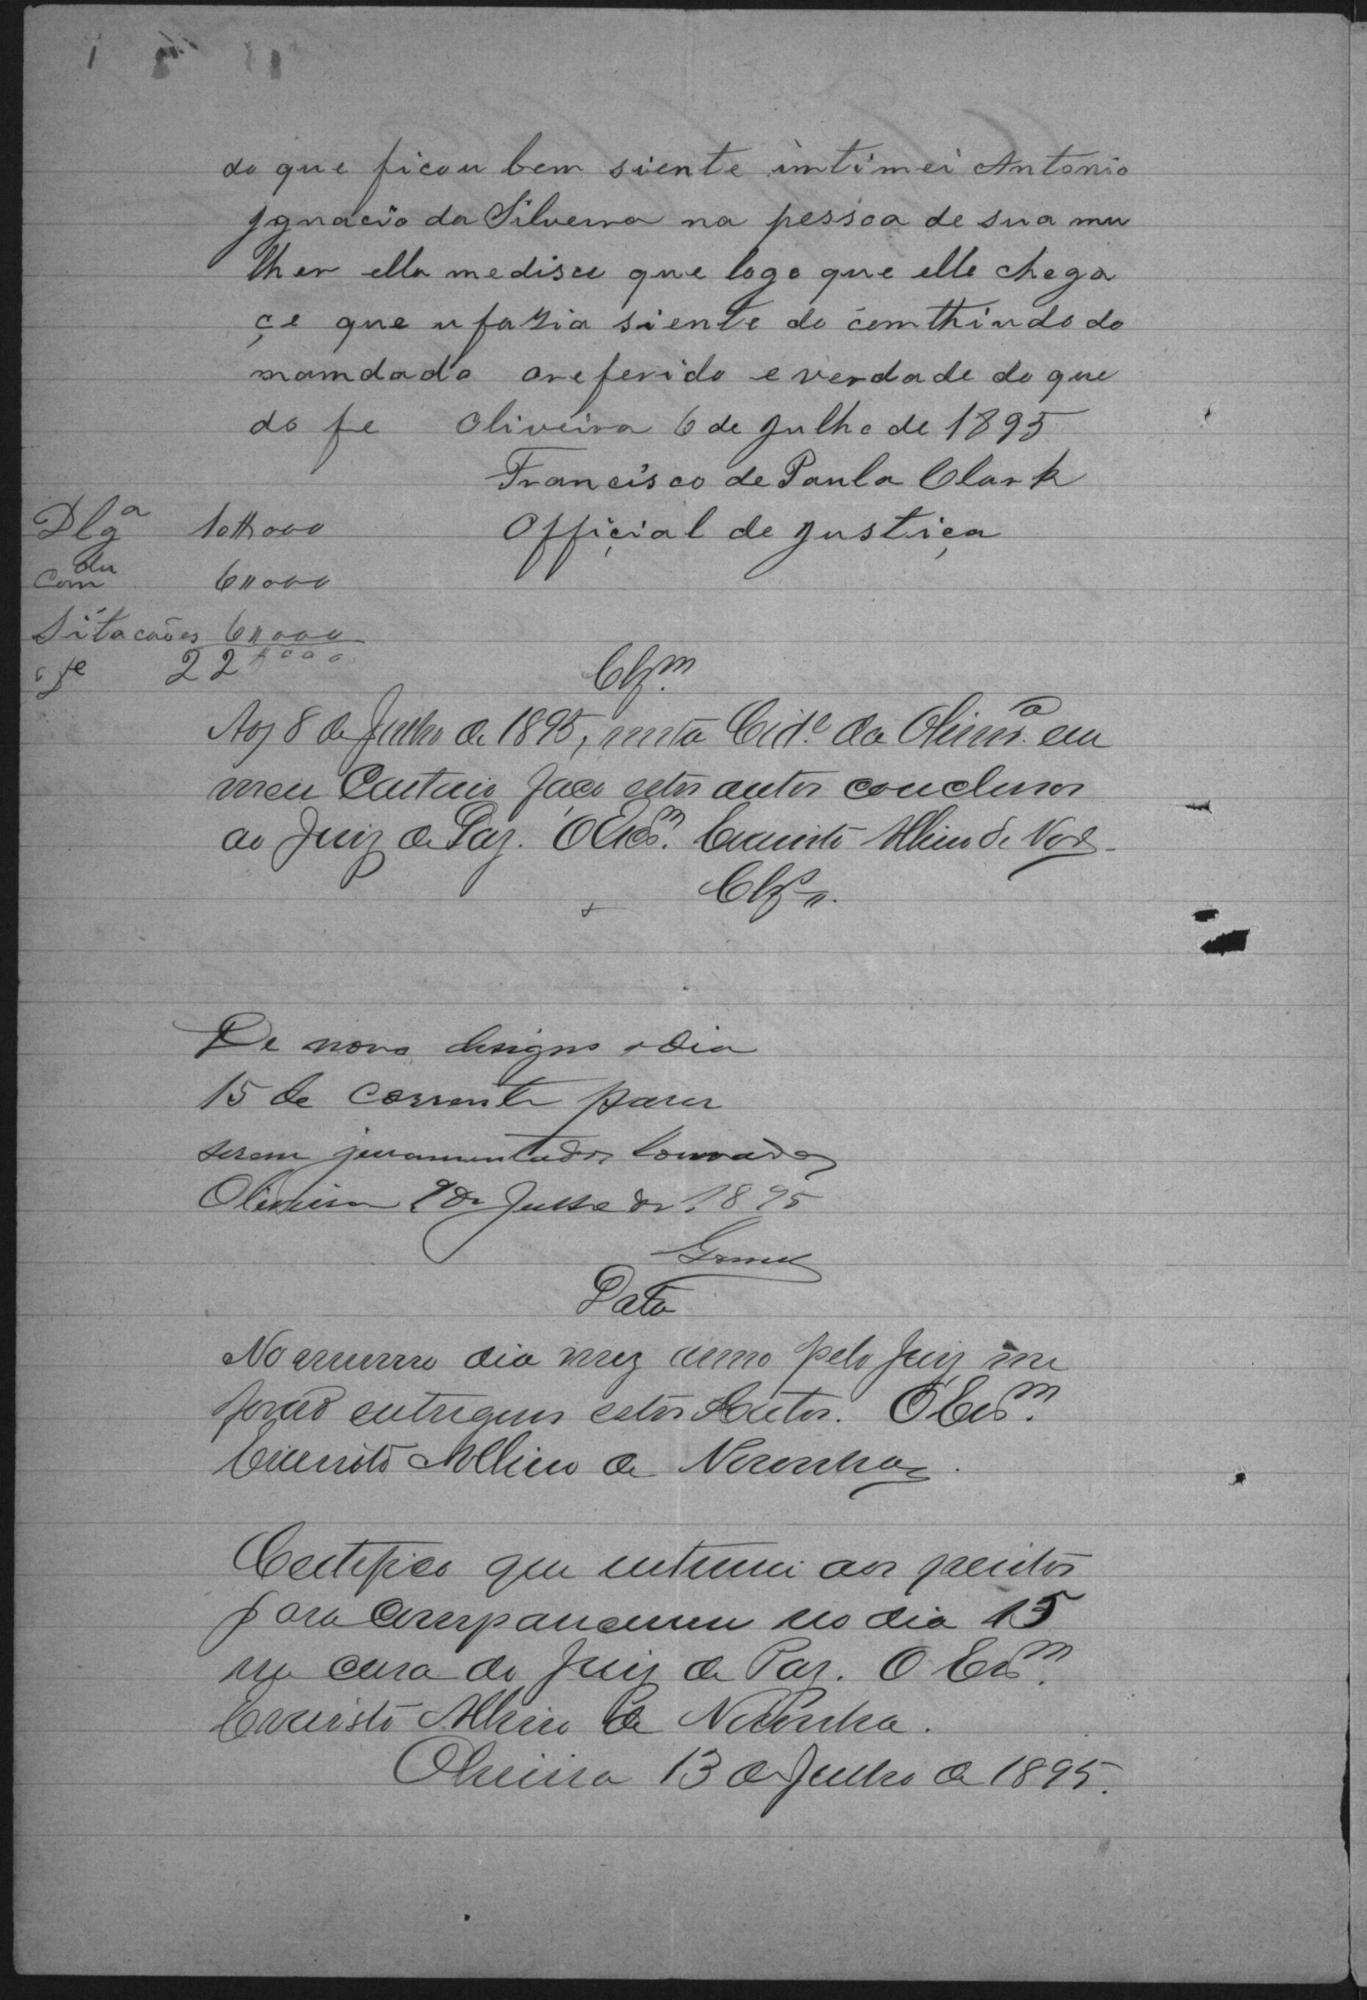 do que ficou bem siente intimei Antonio
Ignacio da Silveira na pessoa de sua mu
lher ella medisce que logo que elle chega
çe que u faria siente do comthiudo do
mamdado oreferido e verdade do que
do fe Oliveira 6 de Julho de 1895
Francisco de Paula Clark
Official de Justiça
Dlgª 10#000
Com du 6#000
Sitacoões 6#000
22#000
Clzm.
Aos 8 de Julho de 1895, nesta Cid.e da Olivrª. em
meu Cartorio faço estes autos conclusos
ao Juiz de Paz. O Escm. Evaristo Albino de Nor.
Clzn.
De novo designo o dia
15 de corrente para
serem juramentados louvados
Oliveira 9 de Julho de 1895
Data
No mesmo dia mez e anno pelo Juiz me
forão entregues estes Autos. O Escm.
Evaristo Albino de Noronha.
Certifico que intimei aos peritos
para comparecerem no dia 15
na casa do Juiz de Paz. O Escm.
Evaristo Albino de Noronha.
Oliveira 13 de Julho de 1895.